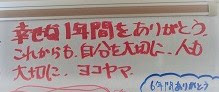 幸せな1年間をありがとう
これからも、自分を大切に、人も
大切に。ヨコヤマ
6年間ありがとう